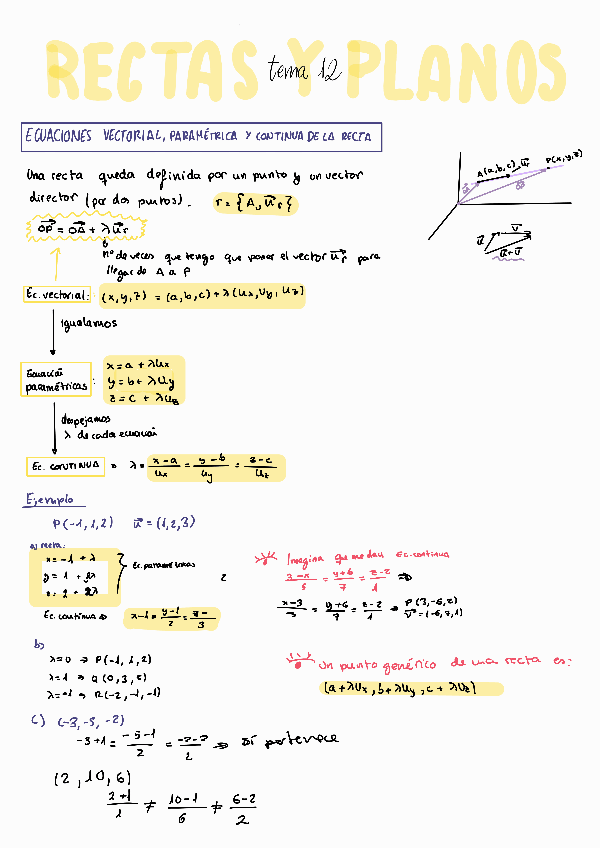 RECTAS Y PLANOS
tema 12
ECUACIONES VECTORIAL, PARAMÉTRICA Y CONTINUA DE LA RECTA
Una recta queda definida por un punto y un vector
director (por dos puntos). r = {A, u⃗r}
OP⃗ = OA⃗ + λu⃗r
nº de veces que tengo que poner el vector u⃗r para
llegar de A a P
A(a,b,c) u⃗r P(x,y,z)
u⃗ v⃗
u⃗+v⃗
Ec. vectorial: (x,y,z) = (a,b,c) + λ(Ux,Uy,Uz)
igualamos
Ecuación
paramétricas :
x = a + λux
y = b + λUy
z = c + λUz
despejamos
λ de cada ecuación
Ec. CONTINUA ⇒ λ = x-a/ux = y-b/uy = z-c/uz
Ejemplo
P(-1,1,2) u⃗ = (1,2,3)
a) recta:
x = -1 + λ
y = 1 + 2λ
z = 2 + 2λ
Ec. paramétricas
2
Ec. continua ⇒ x-1 = y-1/2 = z-/3
Imagina que me dan Ec. continua
x-x/5 = y+6/7 = z-2/1 ⇒
x-3/5 = y+6/7 = z-2/1 ⇒ P(3,-6,2)
b)
λ=0 ⇒ P(-1,1,2)
λ=1 ⇒ Q(0,3,5)
λ=-1 ⇒ R(-2,-1,-1)
Un punto genérico de una recta es:
(a+λUx, b+λUy, c+λUz)
c) (-3,-5,-2)
-3+1 = -5-1/2 = -2-2/2 ⇒ Sí pertenece
(2,10,6)
2+1/1 ≠ 10-1/6 ≠ 6-2/2